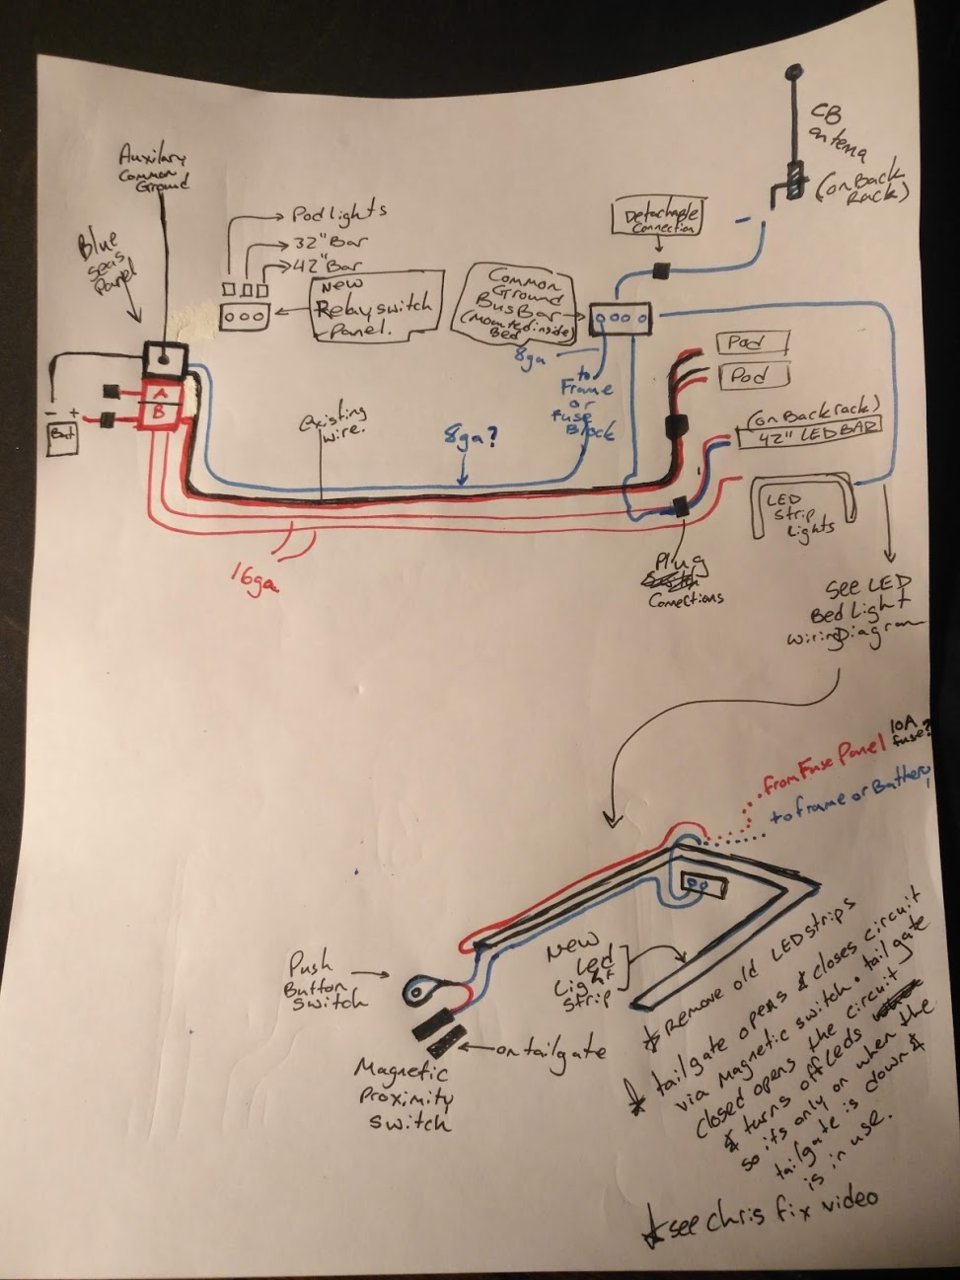 CB
antenna
(on Back
Rack)
Auxilary
Common
Ground
Pod Lights
32" Bar
42" Bar
Blue
Seas
Panel
New
Relay switch
Panel.
Detachable
Connection
Common
Ground
Bus Bar
(Mounted inside)
Bed
8ga
to
Frame
or
Fuse
Block
Pod
Pod
A
B
- +
Bat
Existing
wire.
8ga?
(on Backrack)
42" LED BAR
LED
Strip
Lights
16ga
Plug
Connections
See LED
Bed Light
wiring Diagram
from Fuse Panel 10A
fuse?
to frame or Battery
Push
Button
Switch
New
Led
Light
Strip
on tailgate
Magnetic
Proximity
switch
Remove old LED strips
tailgate opens & closes circuit
via magnetic switch. tailgate
closed opens the circuit
& turns off Leds
so its only on when the
tailgate is down &
is in use.
see chris fix video